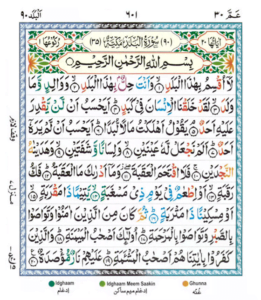 عـمّ ٣٠
٦٠١
البلد ٩٠
اٰیاتُها ٢٠
(٩٠) سُوْرَةُ الْبَلَدِ مَکِّیَّةٌ (٣٥)
رُکُوْعُهَا ١
بِسْمِ اللّٰهِ الرَّحْمٰنِ الرَّحِیْمِ
لَاۤ اُقْسِمُ بِهٰذَا الْبَلَدِ ۙ وَ اَنْتَ حِلٌّۢ بِهٰذَا الْبَلَدِ ۙ وَ وَالِدٍ وَّ مَا
وَلَدَ ۙ لَقَدْ خَلَقْنَا الْاِنْسَانَ فِیْ كَبَدٍ ؕ اَیَحْسَبُ اَنْ لَّنْ یَّقْدِرَ
عَلَیْهِ اَحَدٌ ۘ یَقُوْلُ اَهْلَكْتُ مَالًا لُّبَدًا ؕ اَیَحْسَبُ اَنْ لَّمْ یَرَهٗۤ
اَحَدٌ ؕ اَلَمْ نَجْعَلْ لَّهٗ عَیْنَیْنِ ۙ وَ لِسَانًا وَّ شَفَتَیْنِ ۙ وَ هَدَیْنٰهُ
النَّجْدَیْنِ ۚ فَلَا اقْتَحَمَ الْعَقَبَةَ ؗۖ وَ مَاۤ اَدْرٰىكَ مَا الْعَقَبَةُ ؕ فَكُّ
رَقَبَةٍ ۙ اَوْ اِطْعٰمٌ فِیْ یَوْمٍ ذِیْ مَسْغَبَةٍ ۙ یَّتِیْمًا ذَا مَقْرَبَةٍ ۙ
اَوْ مِسْكِیْنًا ذَا مَتْرَبَةٍ ؕ ثُمَّ كَانَ مِنَ الَّذِیْنَ اٰمَنُوْا وَ تَوَاصَوْا
بِالصَّبْرِ وَ تَوَاصَوْا بِالْمَرْحَمَةِ ؕ اُولٰٓىِٕكَ اَصْحٰبُ الْمَیْمَنَةِ ؕ وَ الَّذِیْنَ
كَفَرُوْا بِاٰیٰتِنَا هُمْ اَصْحٰبُ الْمَشْـَٔمَةِ ؕ عَلَیْهِمْ نَارٌ مُّؤْصَدَةٌ ۠
Idghaam
ادغام
Idghaam Meem Saakin
ادغام میم ساکن
Ghunna
غنّہ